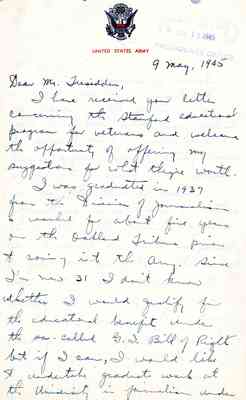 UNITED STATES ARMY
9 May, 1945
Dear Mr. Tresidder,
I have received your letter
concerning the Stanford educational
program for veterans and welcome
the opportunity of offering my
suggestions for what they're worth.
I was graduated in 1937
from the Division of Journalism
& worked for about five years
on the Oakland Tribune prior
to going into the Army. Since
I'm now 31 I don't know
whether I would qualify for
the educational benefit under
the so-called G.I. Bill of Right
but if I can, I would like
to undertake graduate work at
the University in journalism under